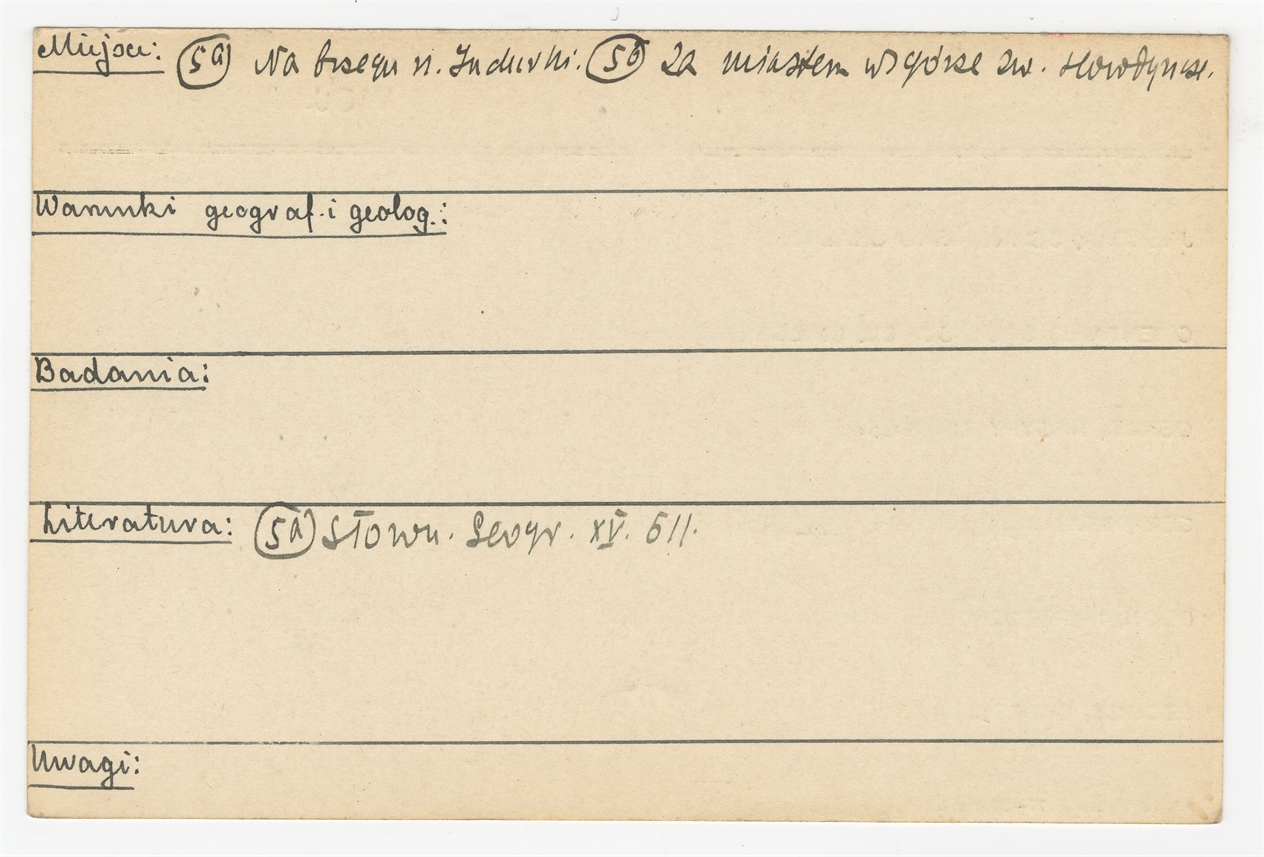 Miejsce: (5a) Na brzegu rz. Indurki. (5b) Za miastem wzgórze zw. Horodyszcze.
Warunki geograf. i geolog.:
Badania:
Literatura: (5a) Słown. Geogr. XV. 611.
Uwagi: